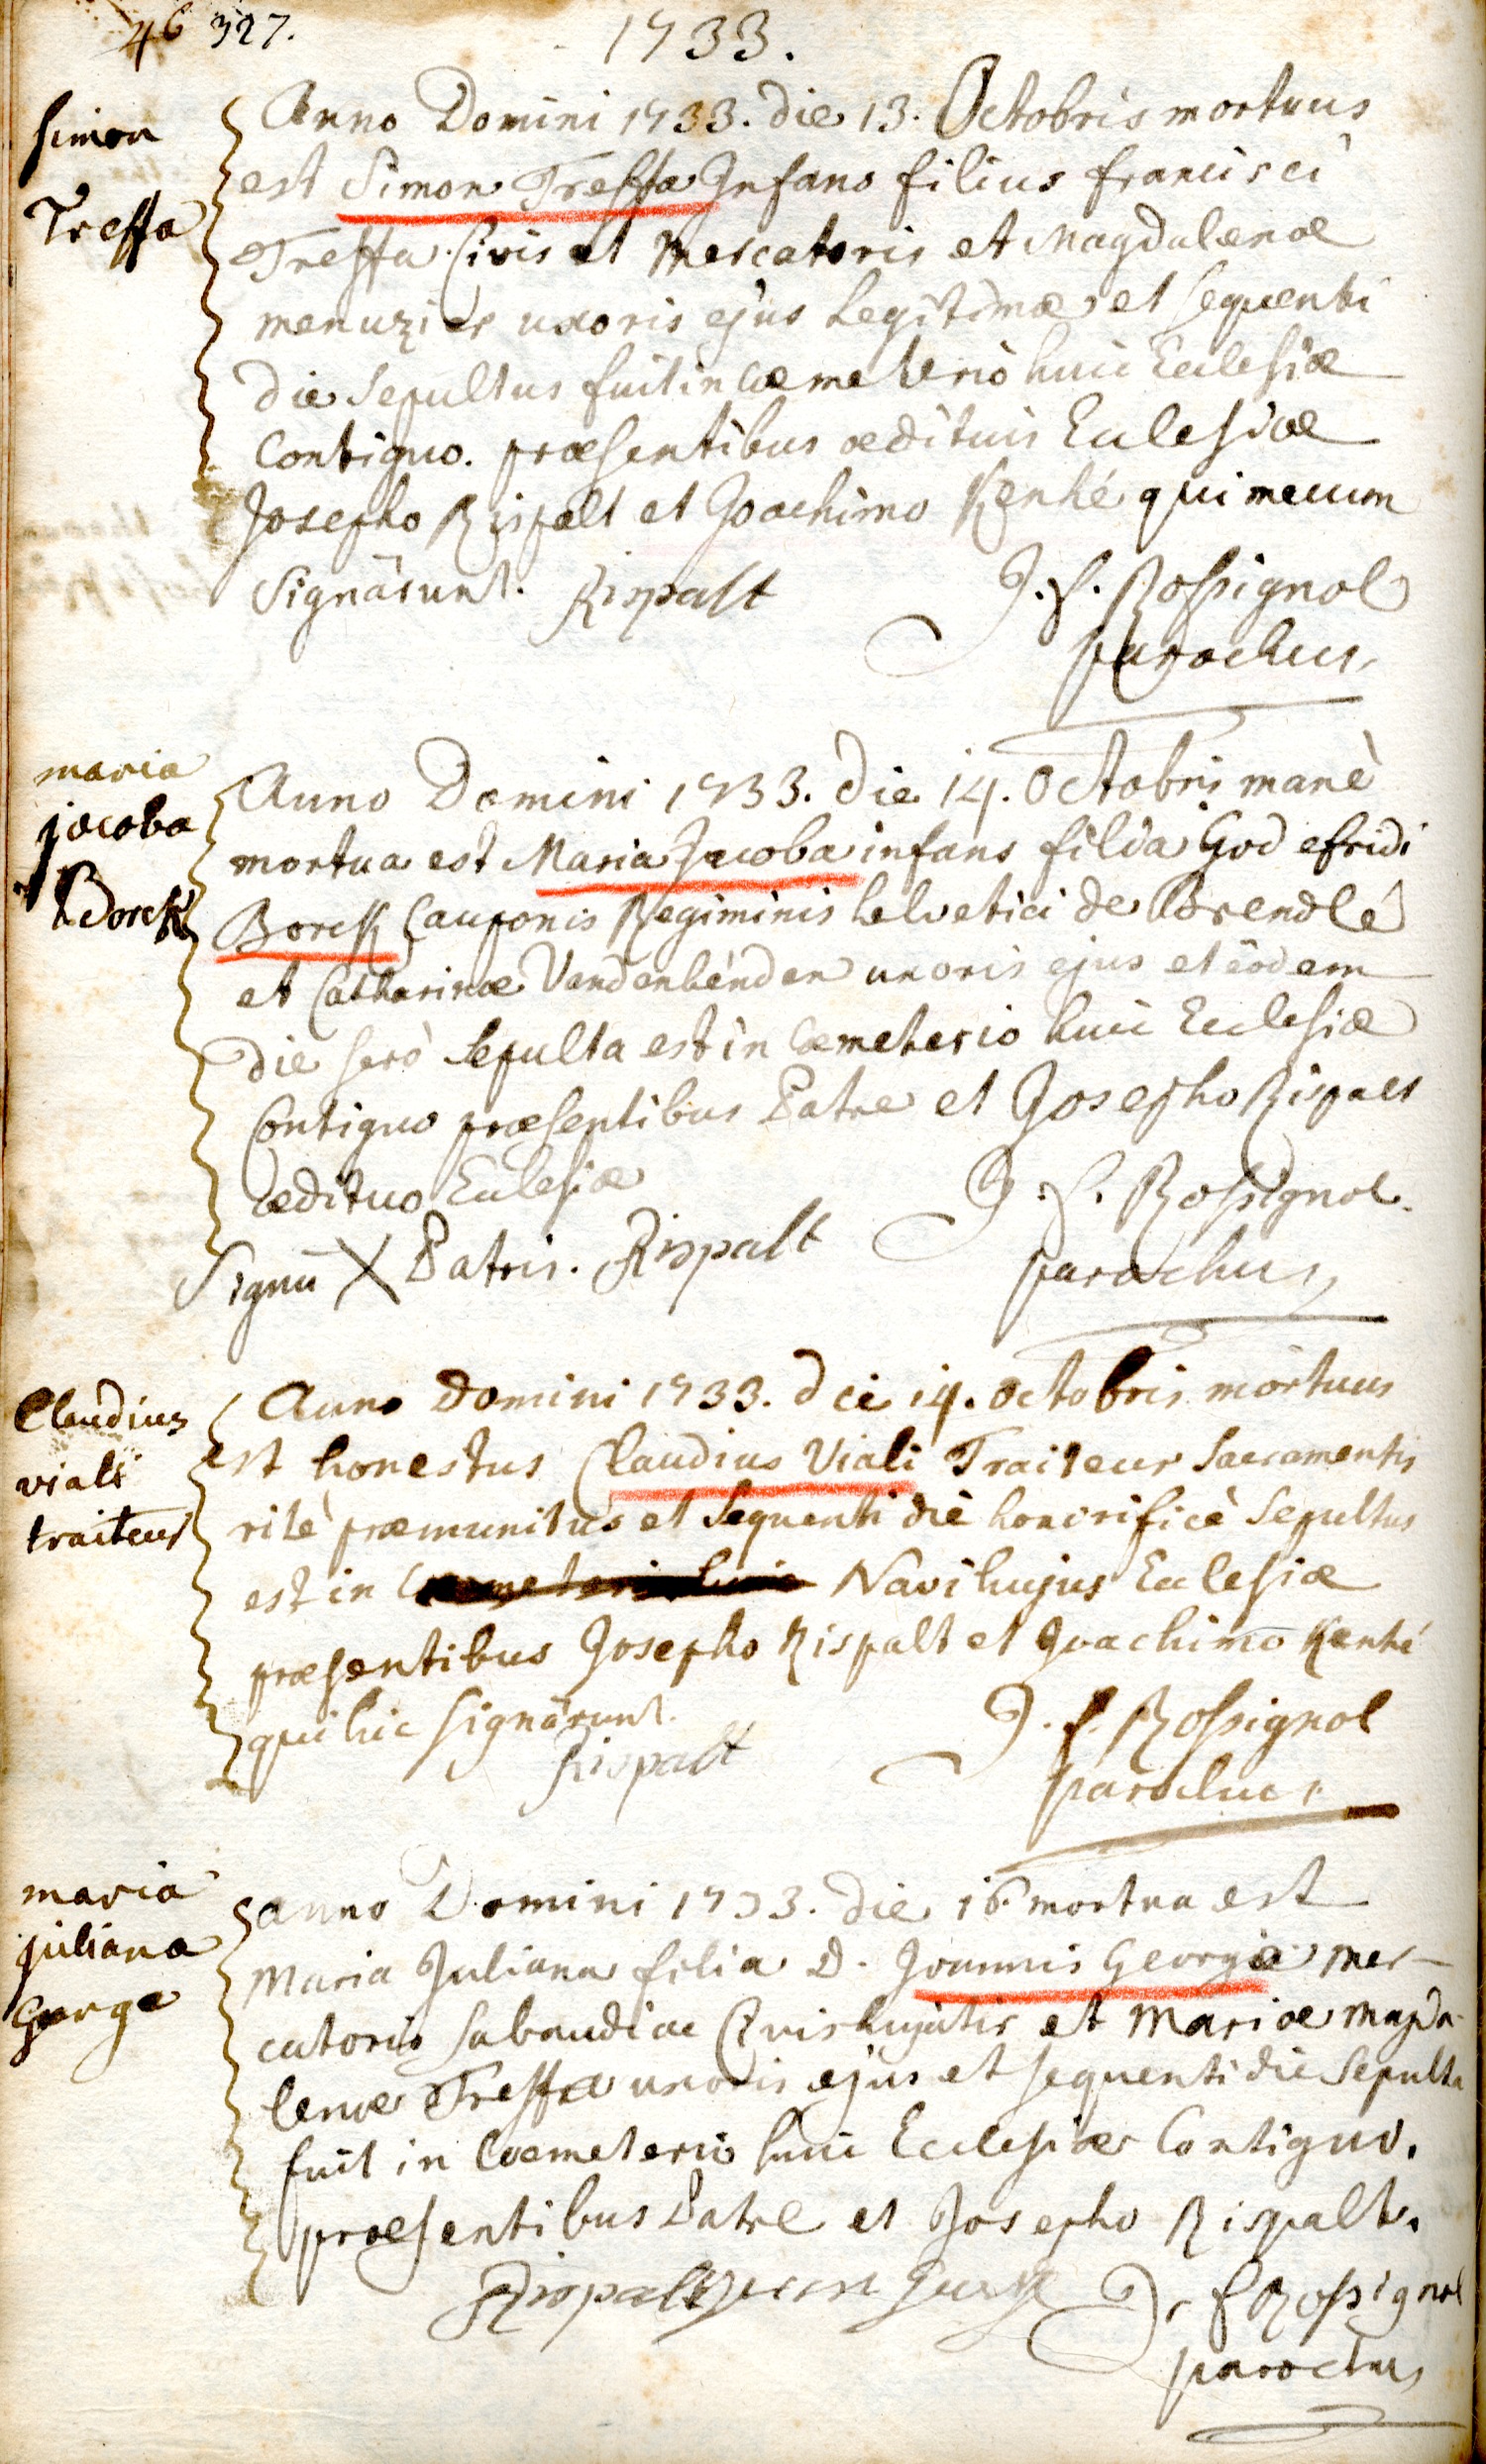 46 327.
1733.
Simon
Treffa
Anno Domini 1733. die 13. Octobris mortuus
est Simon Treffa Infans filius francisci
Treffa Civis et Mercatoris et Magdalenæ
menuzier uxoris ejus legitimæ et sequenti
die sepultus fuit in Cœmeterio huic Ecclesiæ
Contiguo. præsentibus ædituis Ecclesiæ
Josepho Rispalt et Joachimo Kenhé qui mecum
signârunt. Rispalt J. f. Rossignol
parochus
maria
jacoba
Anno Domini 1733. die 14. Octobris manè
mortua est Maria Jacoba infans filia Godefridi
Cauponis Regiminis helvetici de Brendlé
et Catharinæ Vandenhenden uxoris ejus et eôdem
die serò sepulta est in Cœmeterio huic Ecclesiæ
Contiguo præsentibus Patre et Josepho Rispalt
ædituo Ecclesiæ J. f. Rossignol.
Signū X Patris. Rispalt parochus
Claudius
viali
traiteur
Anno Domini 1733. die 14. octobris mortuus
est honestus Claudius Viali Traiteur Sacramentis
ritè præmunitus et sequenti die honorificè sepultus
est in Navi hujus Ecclesiæ
præsentibus Josepho Rispalt et Joachimo Kenhé
qui hic signârunt. J. f. Rossignol
Rispalt parochus
maria
juliana
George
anno Domini 1733. die 16. mortua est
Maria Juliana filia D. Joannis George mer-
catoris Sabaudiæ Civis hujatis et Mariæ Magda-
lenæ Treffa uxoris ejus et sequenti die Sepulta
fuit in Cœmeterio huic Ecclesiæ Contiguo.
præsentibus Patre et Josepho Rispalt.
Rispalt J. f. Rossignol
parochus